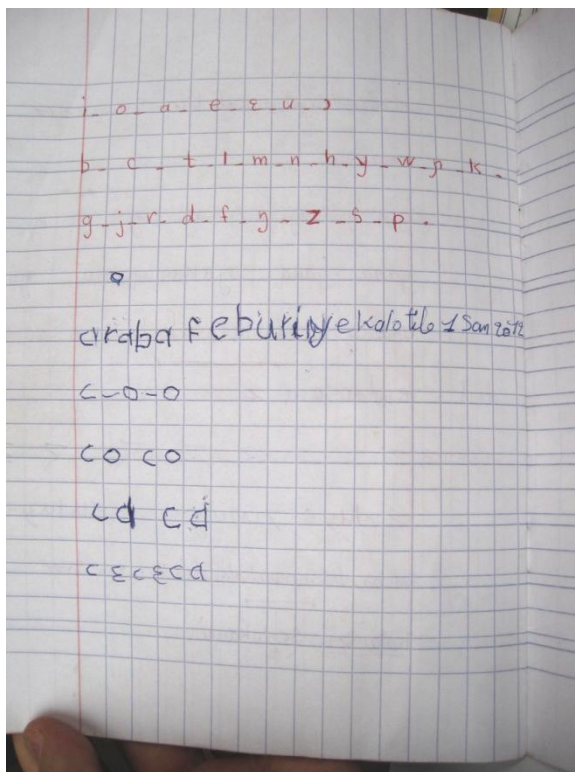 i - o - a - e - ɛ - u - ɔ
b - c - t - l - m - n - h - y - w - p - k .
g - j - r - d - f - ŋ - z - s - p .
o
araba feburiyekalo tile 1 San 2012
c - o - o
co co
ca ca
cɛcɛca